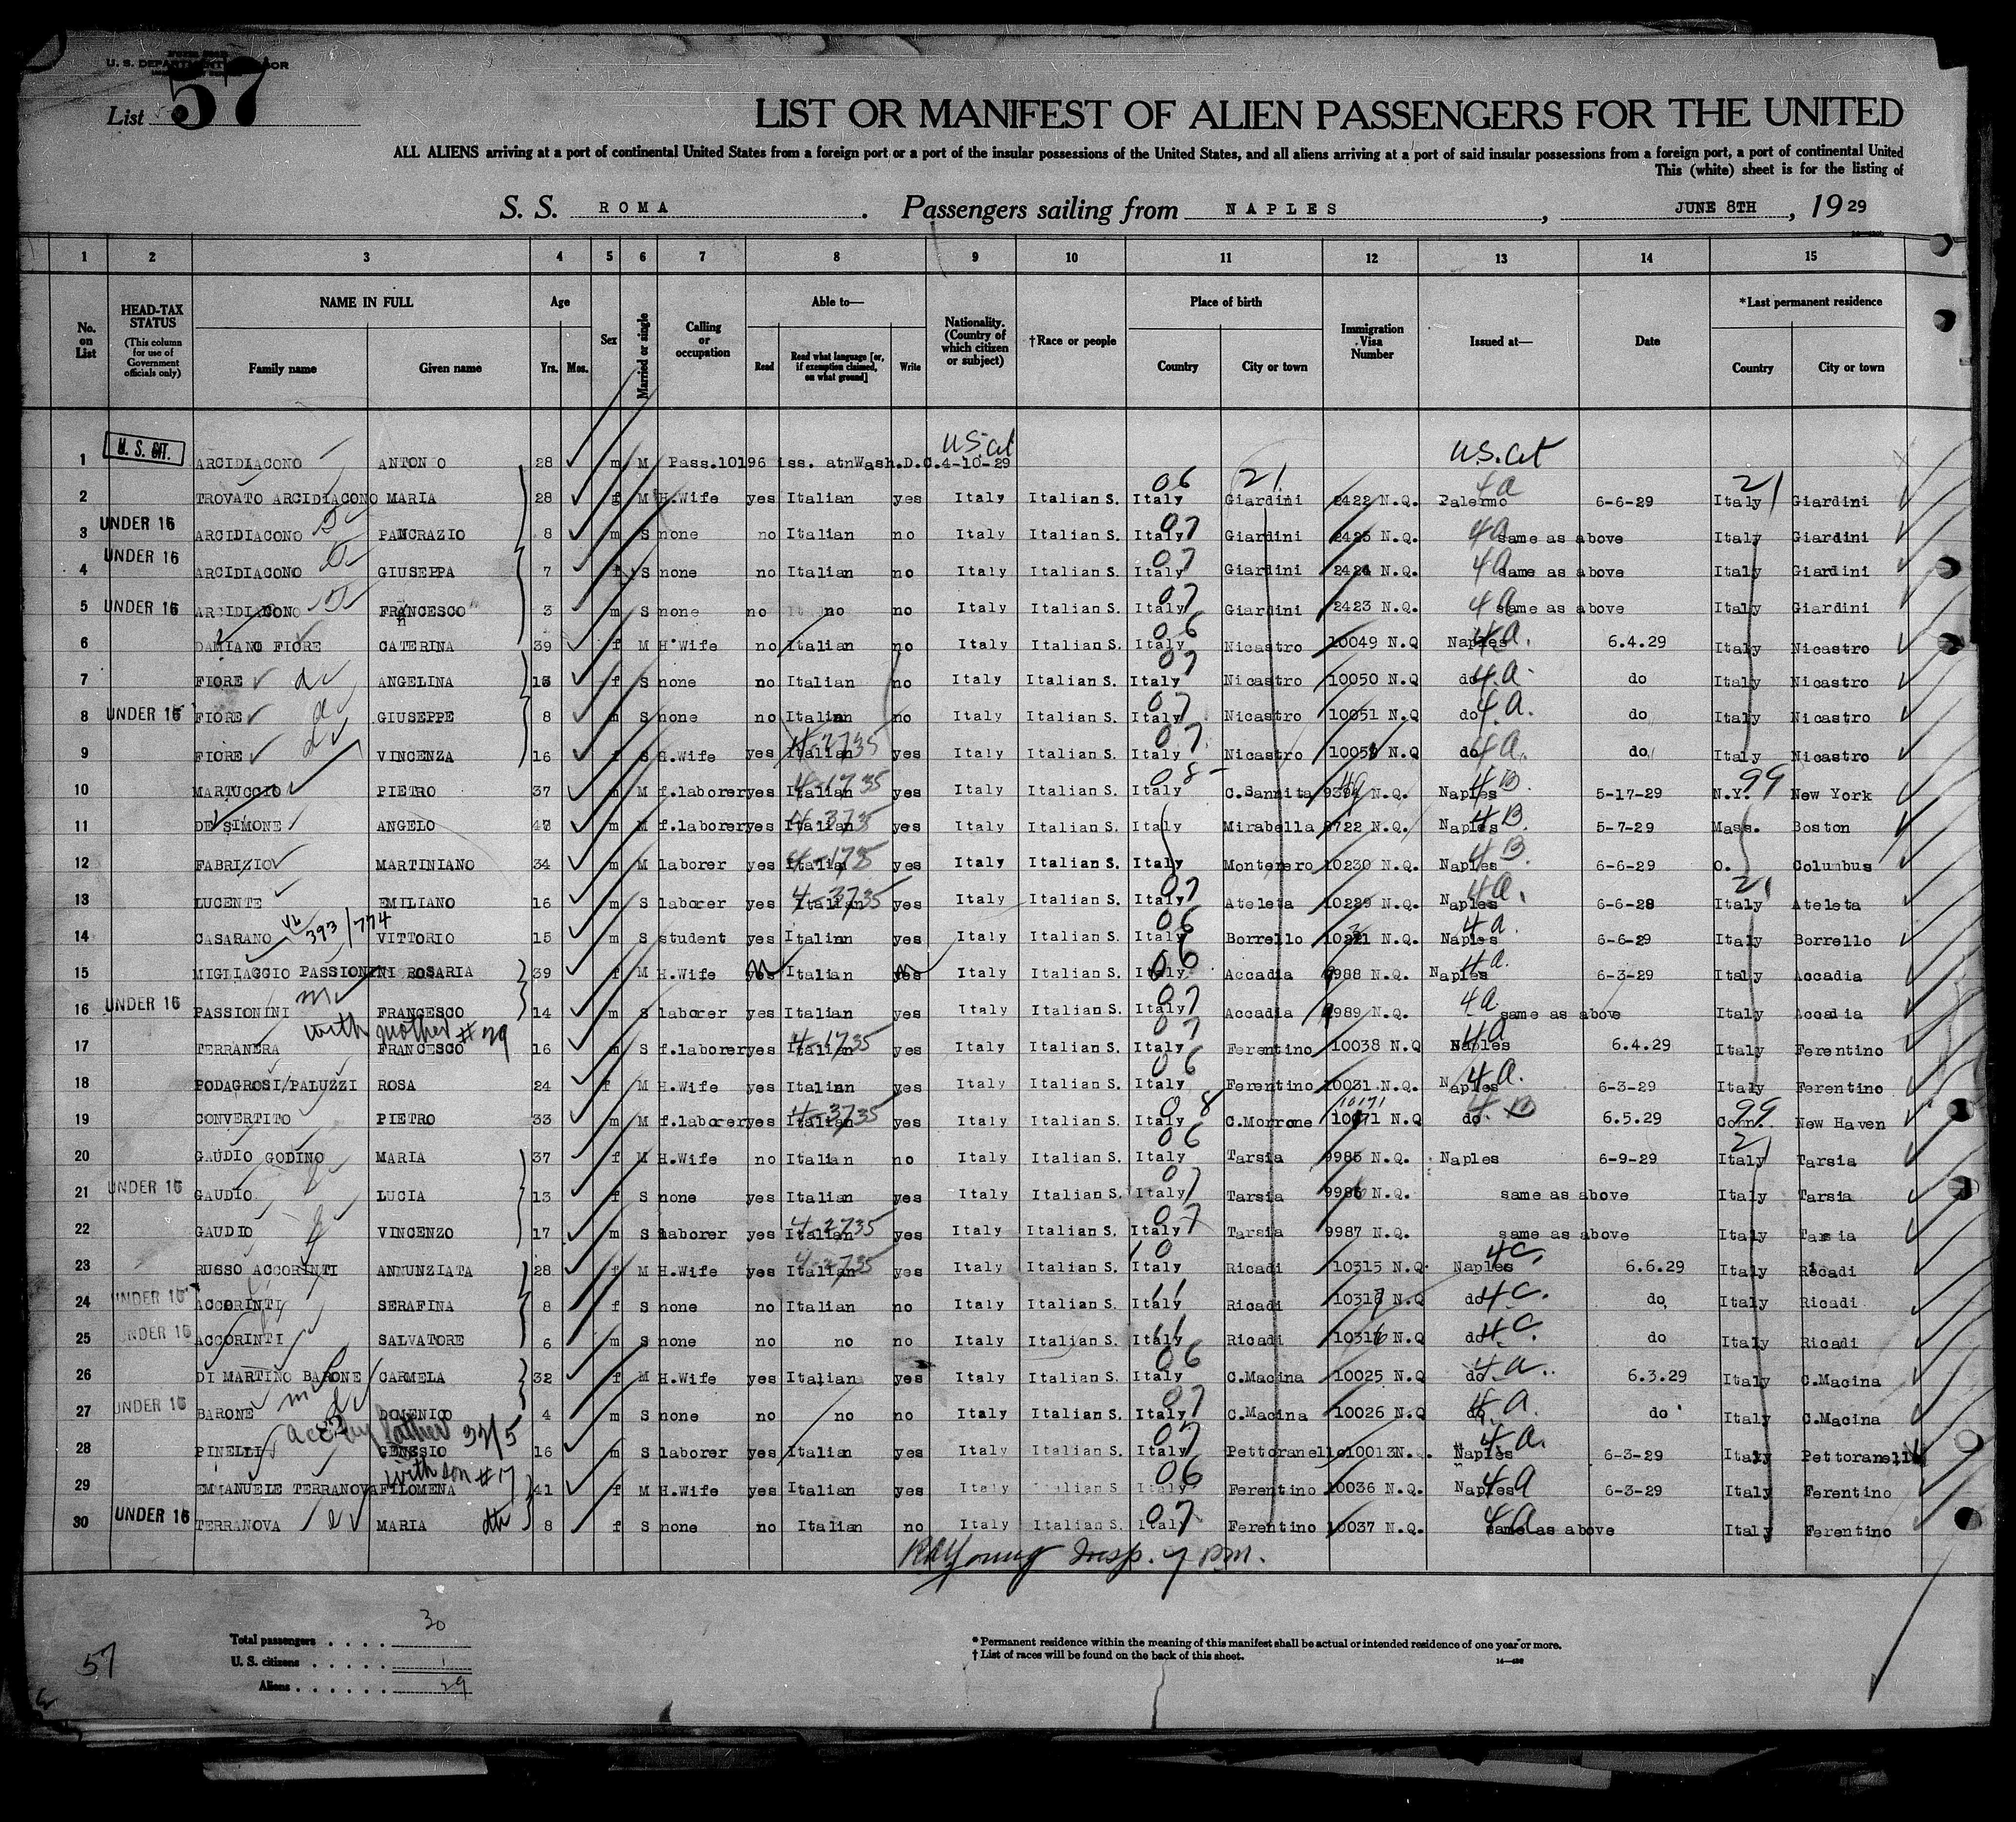 U. S. DEPARTMENT OF LABOR
List 57
LIST OR MANIFEST OF ALIEN PASSENGERS FOR THE UNITED
ALL ALIENS arriving at a port of continental United States from a foreign port or a port of the insular possessions of the United States, and all aliens arriving at a port of said insular possessions from a foreign port, a port of continental United
This (white) sheet is for the listing of
S. S. ROMA. Passengers sailing from NAPLES, JUNE 8TH, 1929
1 2 3 4 5 6 7 8 9 10 11 12 13 14 15
No. on List
HEAD-TAX STATUS (This column for use of Government officials only)
NAME IN FULL Family name Given name
Age Yrs. Mos.
Sex
Married or single
Calling or occupation
Able to— Read Read what language [or, if exemption claimed, on what ground] Write
Nationality. (Country of which citizen or subject)
†Race or people
Place of birth Country City or town
Immigration Visa Number
Issued at—
Date
*Last permanent residence Country City or town
1 U. S. CIT. ARCIDIACONO ANTON O 28 m M Pass.10196 iss. atnWash.D.C.4-10-29 U.S. Cit U.S. Cit
2 TROVATO ARCIDIACONO MARIA 28 f M H.Wife yes Italian yes Italy Italian S. Italy 06 Giardini 21 2422 N.Q. Palermo 4a 6-6-29 Italy 21 Giardini
3 UNDER 16 ARCIDIACONO PANCRAZIO 8 m S none no Italian no Italy Italian S. Italy 07 Giardini 2425 N.Q. 4a same as above Italy Giardini
4 UNDER 16 ARCIDIACONO GIUSEPPA 7 f S none no Italian no Italy Italian S. Italy 07 Giardini 2424 N.Q. 4a same as above Italy Giardini
5 UNDER 16 ARCIDIACONO FRANCESCO 3 m S none no no no Italy Italian S. Italy 07 Giardini 2423 N.Q. 4a same as above Italy Giardini
6 DAMIANO FIORE CATERINA 39 f M H.Wife no Italian no Italy Italian S. Italy 06 Nicastro 10049 N.Q Naples 4a. 6.4.29 Italy Nicastro
7 FIORE ANGELINA f S none no Italian no Italy Italian S. Italy 07 Nicastro 10050 N.Q do 4.a. do Italy Nicastro
8 UNDER 16 FIORE GIUSEPPE 8 m S none no Italian no Italy Italian S. Italy 07 Nicastro 10051 N.Q do 4.a. do Italy Nicastro
9 FIORE VINCENZA 16 f S H.Wife yes Italian yes Italy Italian S. Italy 07 Nicastro N.Q do 4a. do Italy Nicastro
10 MARTUCCIO PIETRO 37 m M f.laborer yes Italian yes Italy Italian S. Italy 08 C.Sannita N.Q. Naples 4B. 5-17-29 N.Y. 99 New York
11 DE SIMONE ANGELO m M f.laborer yes Italian yes Italy Italian S. Italy Mirabella 8722 N.Q. Naples 4B. 5-7-29 Mass. Boston
12 FABRIZIO MARTINIANO 34 m M laborer yes Italian yes Italy Italian S. Italy Montenero 10230 N.Q. Naples 4B. 6-6-29 O. Columbus
13 LUCENTE EMILIANO 16 m S laborer yes Italian 4-3735 yes Italy Italian S. Italy 07 Ateleta 10229 N.Q. Naples 4a. 6-6-28 Italy 21 Ateleta
14 CASARANO 393/774 VITTORIO 15 m S student yes Italian yes Italy Italian S. Italy 06 Borrello N.Q. Naples 4a. 6-6-29 Italy Borrello
15 MIGLIACCIO PASSIONINI ROSARIA 39 f M H.Wife yes Italian yes Italy Italian S. Italy 06 Accadia 9988 N.Q. Naples 4a. 6-3-29 Italy Accadia
16 UNDER 16 PASSIONINI FRANCESCO 14 m S laborer yes Italian yes Italy Italian S. Italy 07 Accadia 9989 N.Q. 4a. same as above Italy Accadia
with mother #29
17 TERRANERA FRANCESCO 16 m S f.laborer yes Italian 4-1735 yes Italy Italian S. Italy 07 Ferentino 10038 N.Q Naples 4a 6.4.29 Italy Ferentino
18 PODAGROSI/PALUZZI ROSA 24 f M H.Wife yes Italian yes Italy Italian S. Italy 06 Ferentino 10031 N.Q. Naples 4a. 6-3-29 Italy Ferentino
19 CONVERTITO PIETRO 33 m M f.laborer yes Italian 4-3735 yes Italy Italian S. Italy 08 C.Morrone 10171 N.Q do. 4B 6.5.29 Conn. 99 New Haven
20 GAUDIO GODINO MARIA 37 f M H.Wife no Italian no Italy Italian S. Italy 06 Tarsia 9985 N.Q. Naples 6-9-29 Italy 21 Tarsia
21 UNDER 16 GAUDIO LUCIA 13 f S none yes Italian yes Italy Italian S. Italy 07 Tarsia 9986 N.Q. same as above Italy Tarsia
22 GAUDIO VINCENZO 17 m S laborer yes Italian 4-2735 yes Italy Italian S. Italy 07 Tarsia 9987 N.Q. same as above Italy Tarsia
23 RUSSO ACCORINTI ANNUNZIATA 28 f M H.Wife yes Italian yes Italy Italian S. Italy 10 Ricadi 10315 N.Q. Naples 4c. 6.6.29 Italy Ricadi
24 UNDER 16 ACCORINTI SERAFINA 8 f S none no Italian no Italy Italian S. Italy 11 Ricadi N.Q do 4c. do, Italy Ricadi
25 UNDER 16 ACCORINTI SALVATORE 6 m S none no no no Italy Italian S. Italy 11 Ricadi N.Q do 4c. do Italy Ricadi
26 DI MARTINO BARONE CARMELA 32 f M H.Wife yes Italian yes Italy Italian S. Italy 06 C.Macina 10025 N.Q do. 4a. 6.3.29 Italy C.Macina
27 UNDER 16 BARONE DOMENICO 4 m S none no no no Italy Italian S. Italy 07 C.Macina 10026 N.Q do. 4a. do Italy C.Macina
father
28 PINELLI GENESIO 16 m S laborer yes Italian yes Italy Italian S. Italy 07 Pettoranello 10013 N.Q. Naples 4a. 6-3-29 Italy Pettoranello
with son #17
29 EMMANUELE TERRANOVA FILOMENA 41 f M H.Wife yes Italian yes Italy Italian S Italy 06 Ferentino 10036 N.Q. Naples 4a 6-3-29 Italy Ferentino
30 UNDER 16 TERRANOVA MARIA 8 f S none no Italian no Italy Italian S. Italy 07 Ferentino 10037 N.Q. 4a same as above Italy Ferentino
Young Insp.
Total passengers . . . . 30
U. S. citizens . . . . . 1
Aliens . . . . . . 29
57
* Permanent residence within the meaning of this manifest shall be actual or intended residence of one year or more.
† List of races will be found on the back of this sheet.